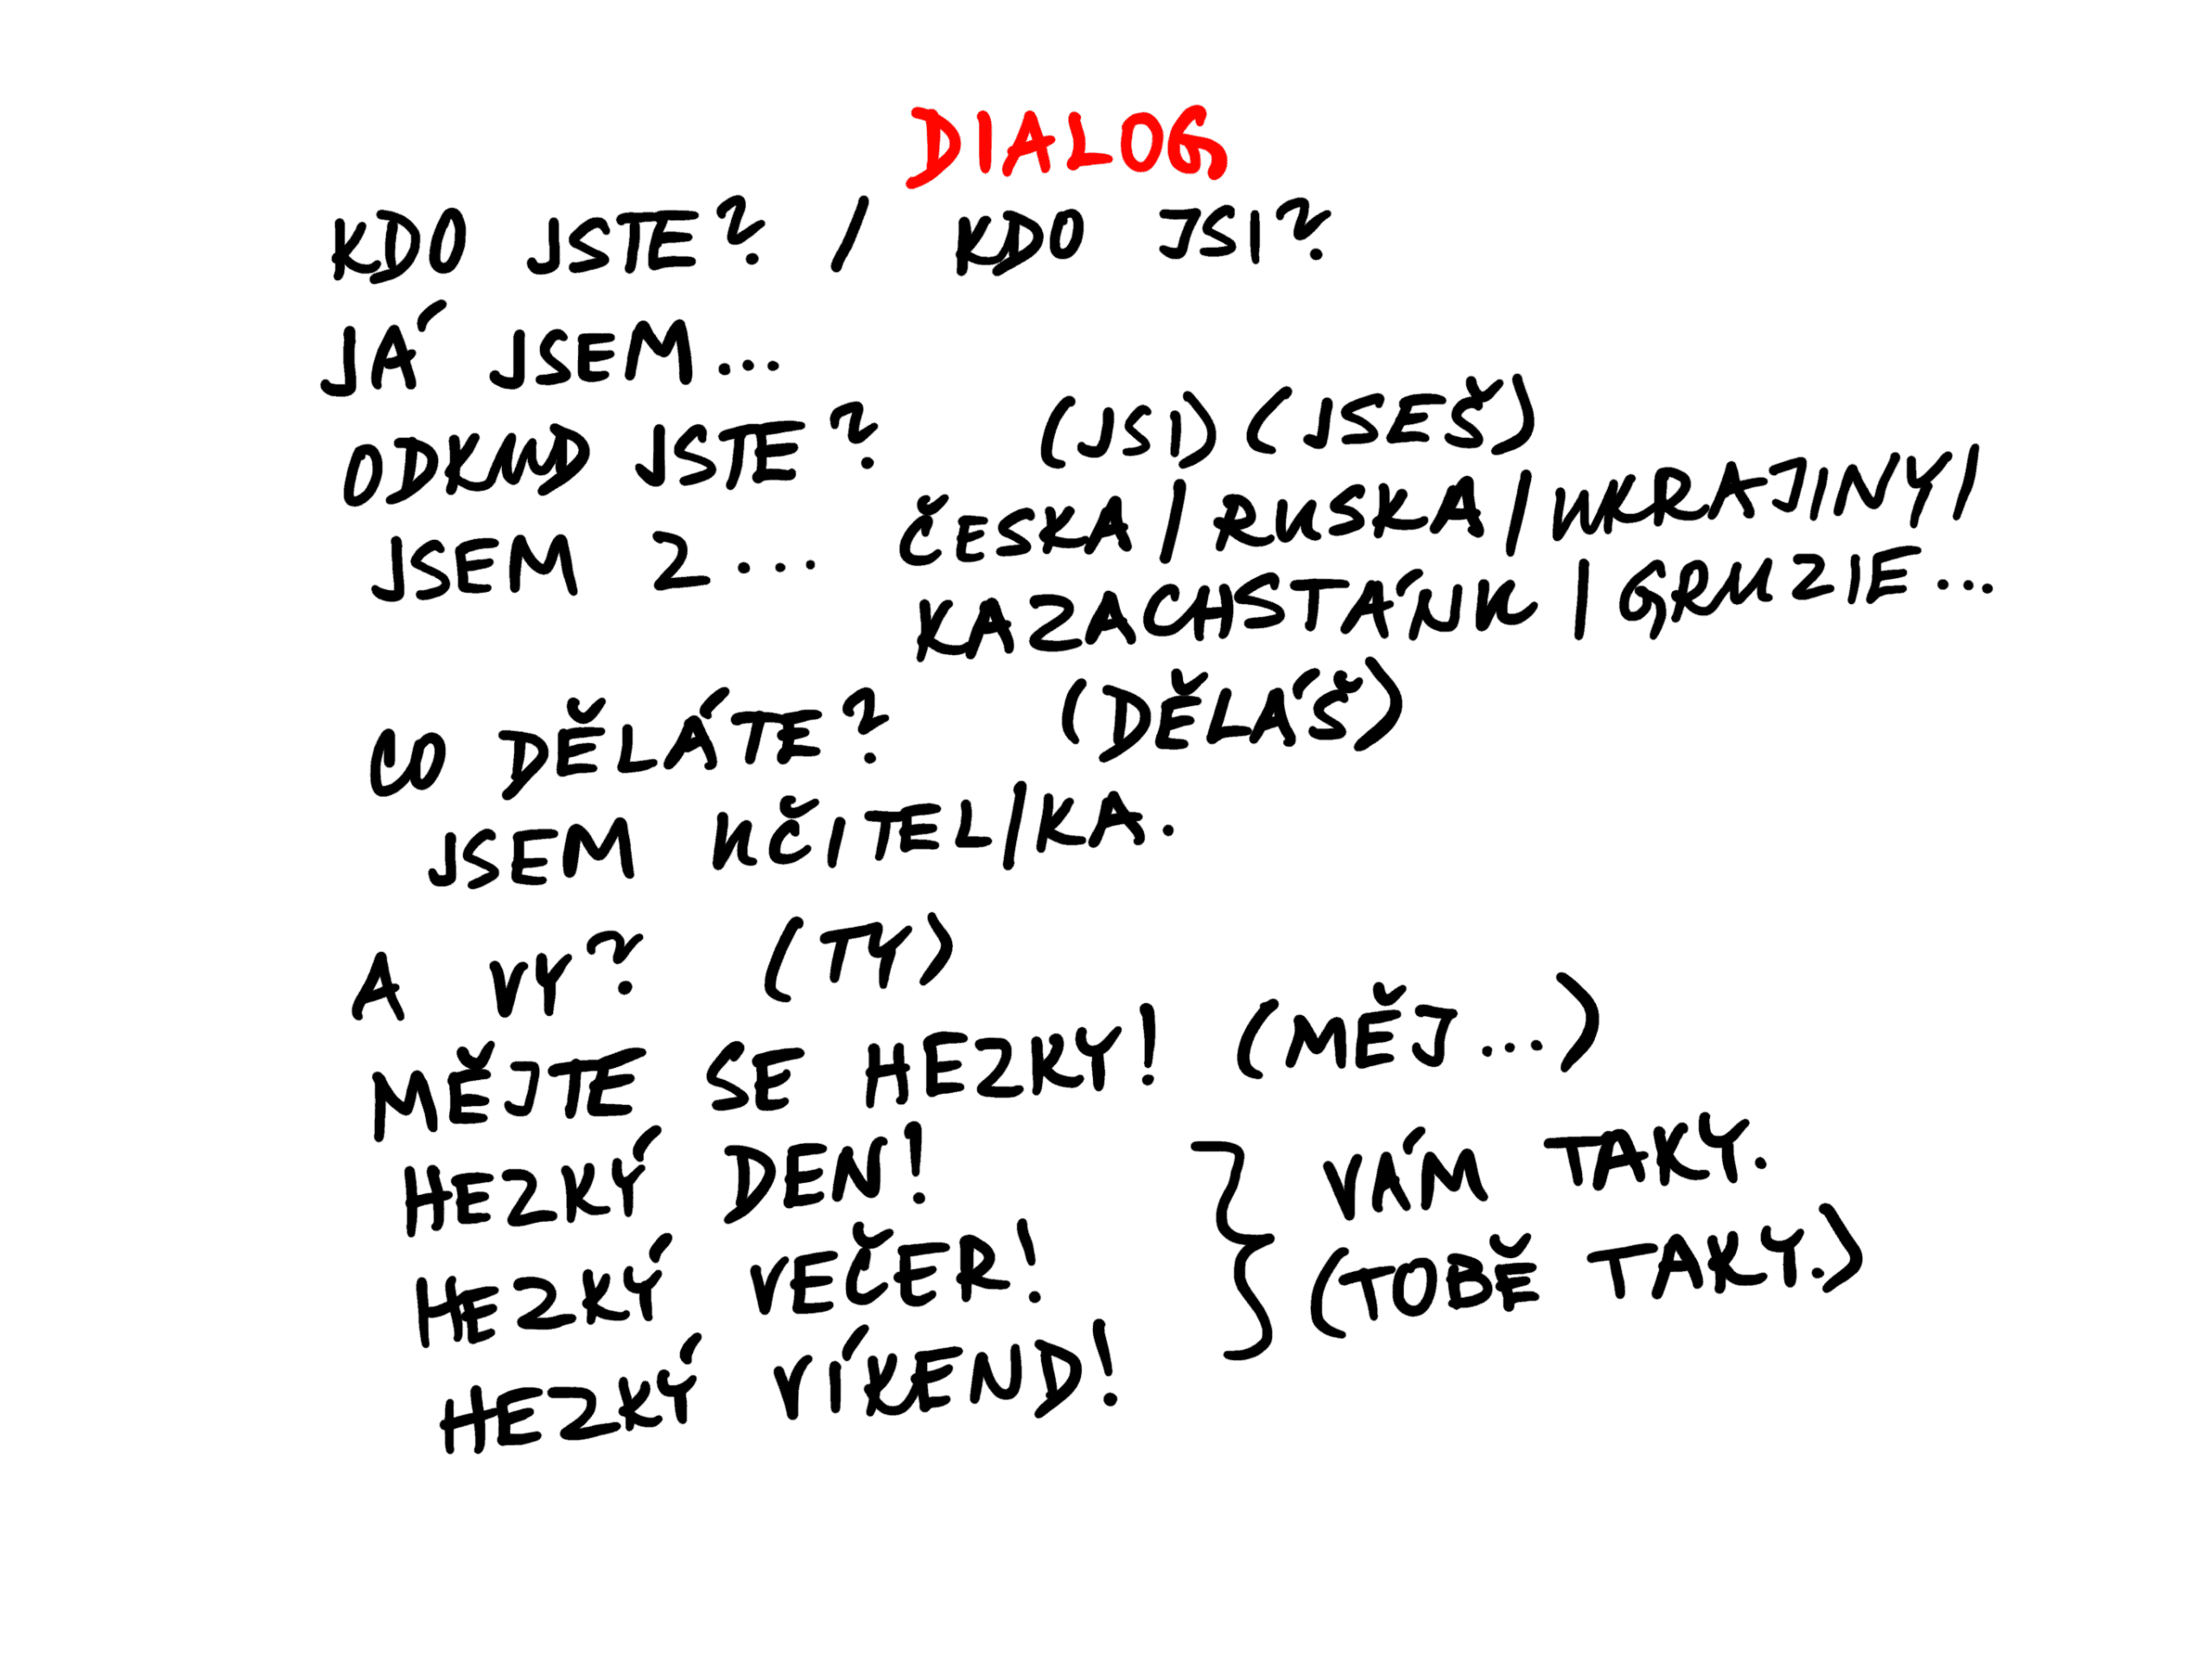 DIALOG
KDO JSTE? / KDO JSI?
JÁ JSEM...
ODKUD JSTE? (JSI) (JSEŠ)
JSEM Z... ČESKA / RUSKA / UKRAJINY /
KAZACHSTÁNU / GRUZIE...
CO DĚLÁTE? (DĚLÁŠ)
JSEM UČITEL/KA.
A VY? (TY)
MĚJTE SE HEZKY! (MĚJ...)
HEZKÝ DEN! } VÁM TAKY.
HEZKÝ VEČER! (TOBĚ TAKY.)
HEZKÝ VÍKEND!